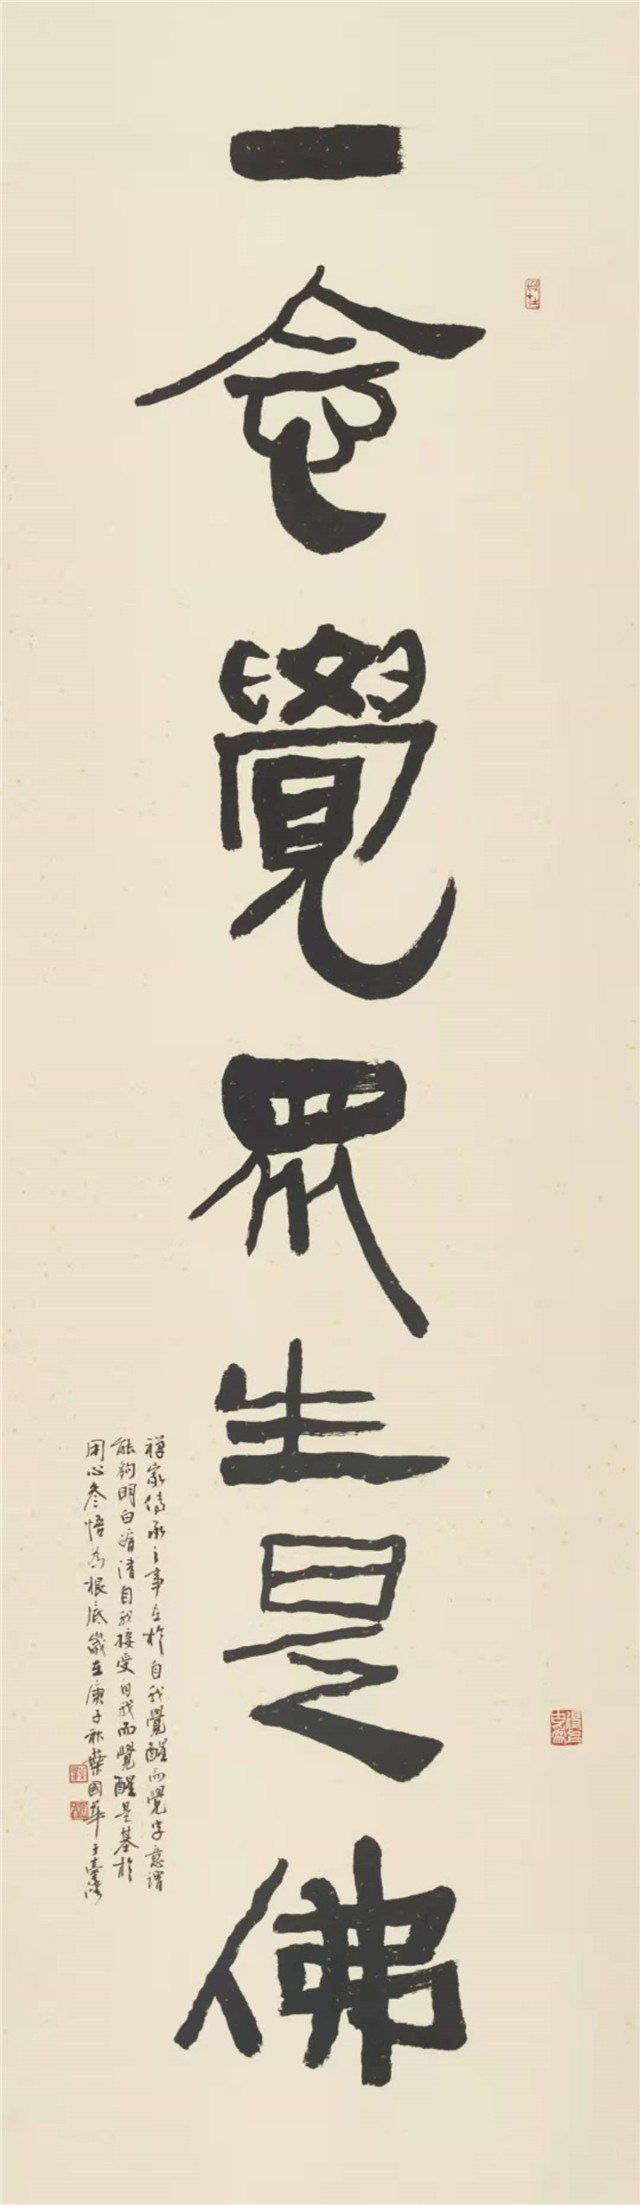 一念覺眾生是佛
禪家傳承之事在於自我覺醒而覺字意謂
能夠明白看清自我接受自我而覺醒是基於
用心參悟為根底歲在庚子秋蔡國華于臺灣